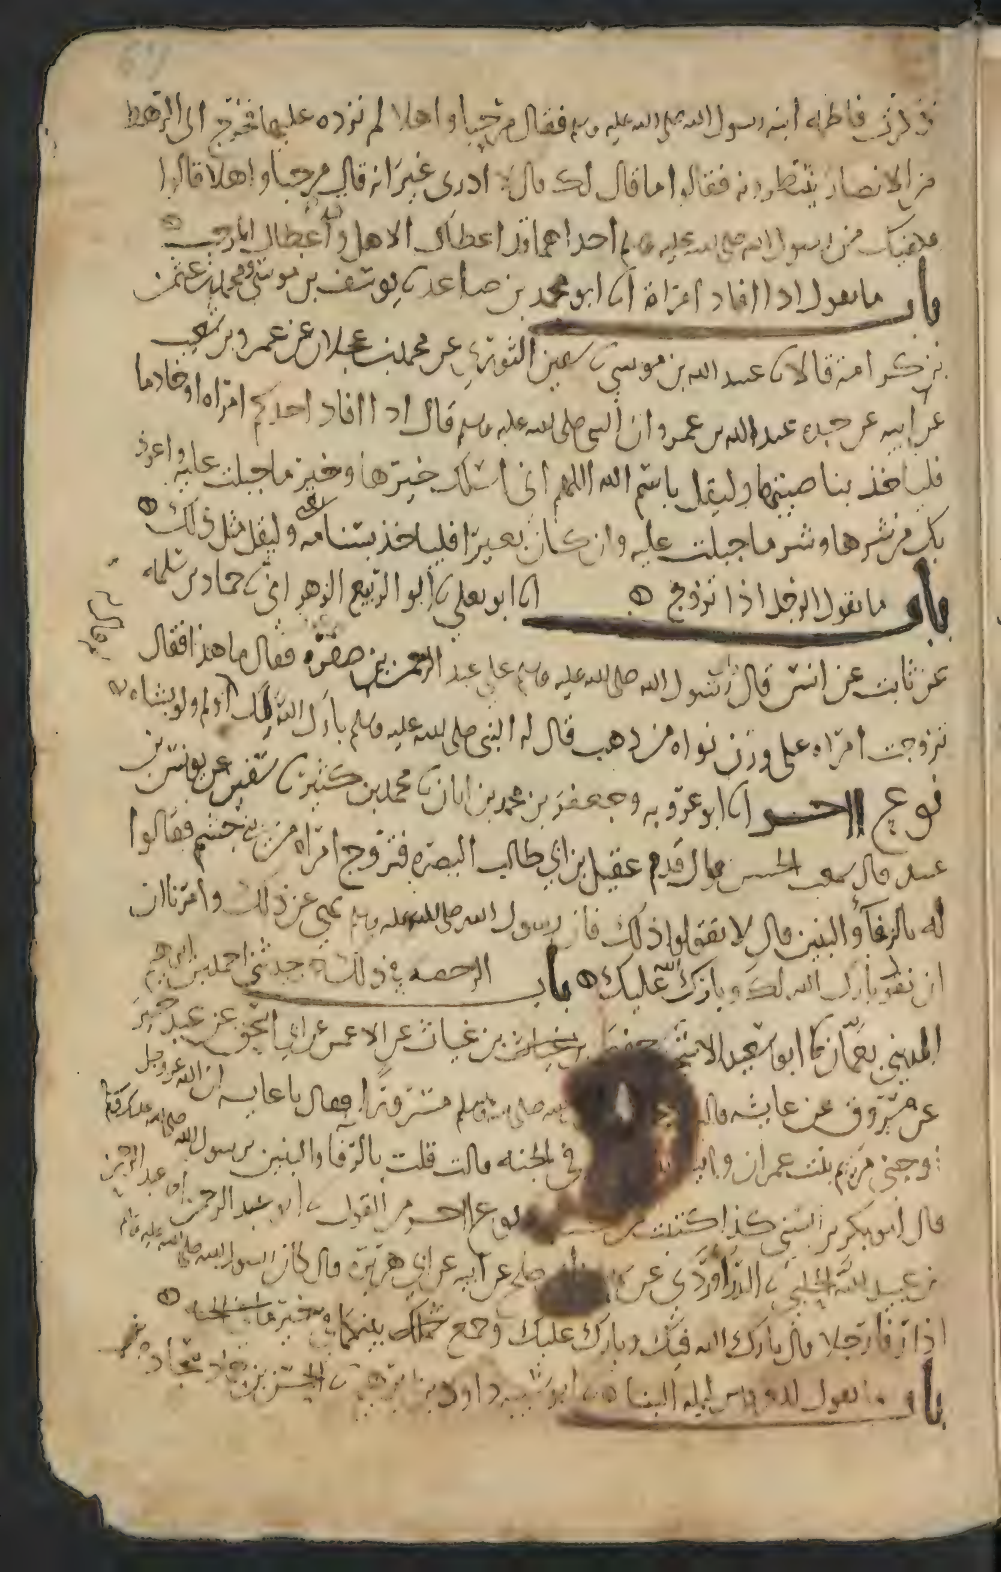 ذكرت فاطمه ابنه رسول الله صلى الله عليه وسلم فقال مرحبا واهلا لم نزده عليها فخرج الى الرهط
من الانصار ينتظرونه فقالوا ما قال لك قال لا ادرى غير انه قال مرحبا واهلا قالوا
يكفيك من رسول الله صلى الله عليه وسلم احداهما قد اعطاك الاهل واعطاك الرحب
باب ما يقول اذا افاد امراة ابو محمد بن صاعد يوسف بن موسى ومحمد بن عثمن
بن كرامة قالا عبيد الله بن موسى سفين الثوري عن محمد بن عجلان عن عمرو بن شعيب
عن ابيه عن جده عبد الله بن عمرو ان النبى صلى الله عليه وسلم قال اذا افاد احدكم امراه او خادما
فلياخذ بناصيتها وليقل باسم الله اللهم انى اسئلك خيرها وخير ما جبلت عليه واعوذ
بك من شرها وشر ما جبلت عليه وان كان بعيرا فلياخذ بسنامه وليقل مثل ذلك
باب ما يقول الرجل اذا تزوج ابو يعلى ابو الربيع الزهراني حماد بن سلمه
عن ثابت عن انس قال رسول الله صلى الله عليه وسلم على عبد الرحمن بن صفرة فقال ما هذا فقال
تزوجت امراه على وزن نواه من ذهب قال له النبى صلى الله عليه وسلم بارك الله لك اولم ولو بشاه
نوع اخر ابو عروبه وجعفر بن محمد بن ابان محمد بن كثير سفين عن يونس بن
عبيد قال سمعت الحسن قال قدم عقيل بن ابي طالب البصره فتزوج امراه من بني جشم فقالوا
له بالرفآ والبنين قال لا تقولوا ذلك فان رسول الله صلى الله عليه وسلم نهى عن ذلك وامرنا ان
ان نقول بارك الله لك وبارك عليك باب الرخصه في ذلك حدثني احمد بن
المديني بعمان ابو سعيد الاشج حفص بن غياث عن الاعمش عن ابي اسحق عن عبد خير
عن مسروق عن عايشه قالت صلى الله عليه وسلم مسرورا فقال يا عايشه ان الله عز وجل
زوجني مريم بنت عمران في الجنه قالت قلت بالرفآ والبنين يرسول الله صلى الله عليك
قال ابو بكر بن السني كذا كتبت نوع اخر من القول ابو عبد الرحمن
بن عبيد الله الحلبي الدراوردي عن صلح عن ابيه عن ابي هريره قال كان رسول الله صلى الله عليه وسلم
اذا رفا رجلا قال بارك الله فيك وبارك عليك وجمع بينكما في خير
باب ما يقول للعروس ليله البنا ابو شيبه داود بن ابرهيم الحسن بن حماد سجاده